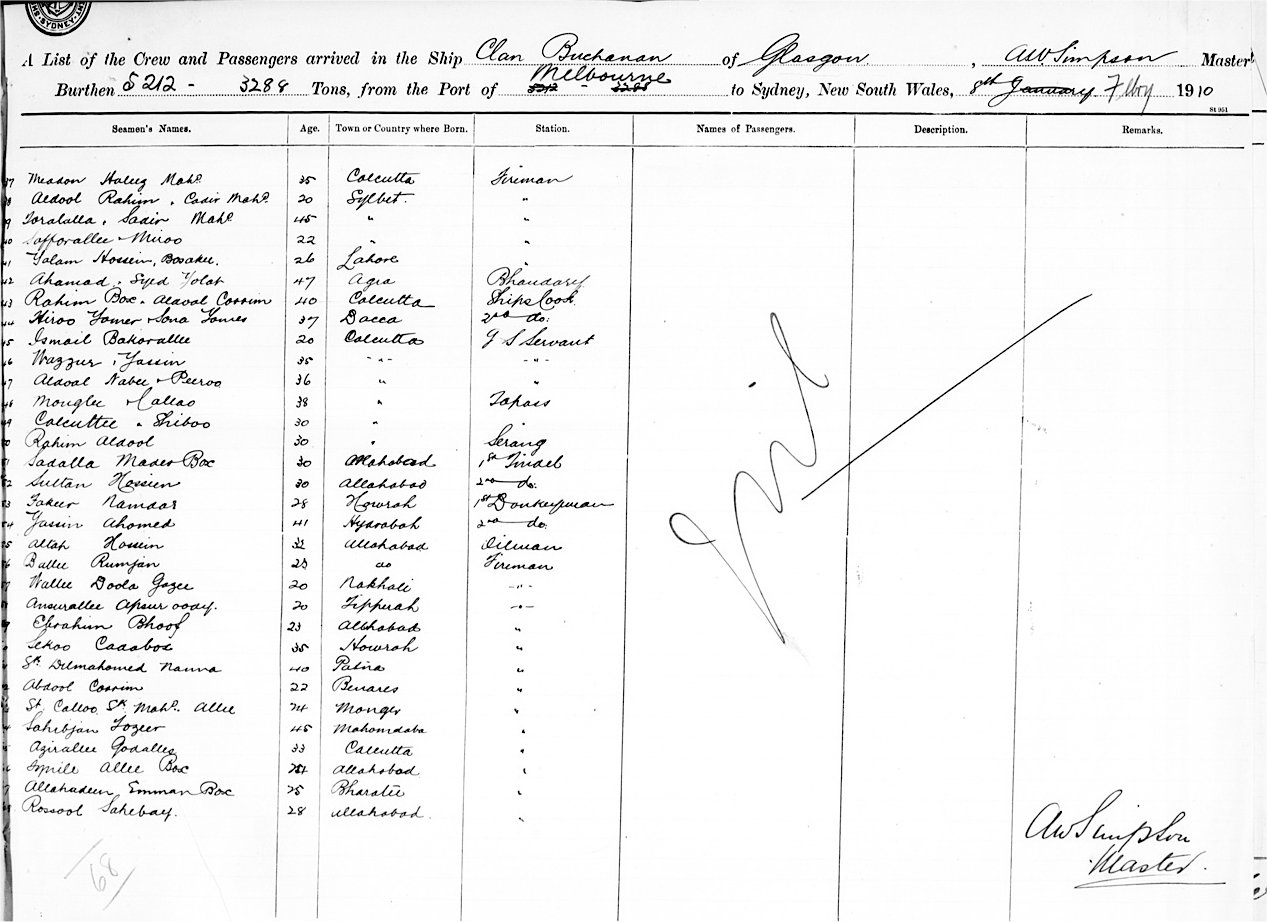 SYDNEY
A List of the Crew and Passengers arrived in the Ship Clan Buchanan of Glasgow, AW Simpson Master
Burthen 5212 - 3288 Tons, from the Port of 5212 - 3288 Melbourne to Sydney, New South Wales, 8th January Feby 1910
St 951
Seamen's Names. Age. Town or Country where Born. Station. Names of Passengers. Description. Remarks.
37 Meadon Hafiez Mahd. 35 Calcutta Fireman
38 Aldool Rahim, Cadir Mahd. 20 Sylbet. "
39 Toralalla, Sadir Mahd. 45 " "
40 Safforallee Miroo 22 " "
41 Golam Hossein, Boxakee. 26 Lahore "
42 Ahamad, Syed Golap 47 Agra Bhandary
43 Rahim Box, Aldool Corrim 40 Calcutta Ships Cook
44 Hiroo Gomes Sona Gomes 37 Dacca 2nd do.
45 Ismail Bakorallee 20 Calcutta G S Servant
46 Wazzur, Yassin 35 " "
47 Aldool Nabee Peeroo 36 " "
48 Monglee Callao 38 " Topass
49 Calcuttee Shiboo 30 "
50 Rahim Aldool 30 " Serang
51 Sadalla Mader Box 30 Allahabad 1st Tindel
52 Sultan Hossien 30 Allahabad 2nd do.
53 Fakeer Namdar 28 Howrah 1st Donkeyman
54 Yassin Ahomed 41 Hydrabah 2nd do.
55 Altaf Hossein 32 Allahabad Oilman
56 Ballee Rumjan 28 do Fireman
57 Wallee Doola Gazee 20 Nakhali "
58 Ansurallee Apsur 20 Tipperah "
59 Ebrahim Bhoof 23 Allhabad "
Sekoo Cadabox 35 Howrah "
Sk. Dilmahomed Nanna 40 Patna "
Abdool Corrim 22 Benares "
St. Calloo Sk Mahd. Allie 24 Monger "
Sahibjan Fozeer 45 Mahomdaba "
Azirallee Godallee 33 Calcutta "
Ismile Allee Box Allahabad "
Allahadeen Emman Box 25 Bharatee "
Rossool Sahebay. 28 Allahabad "
Nil
AW Simpson
Master.
68